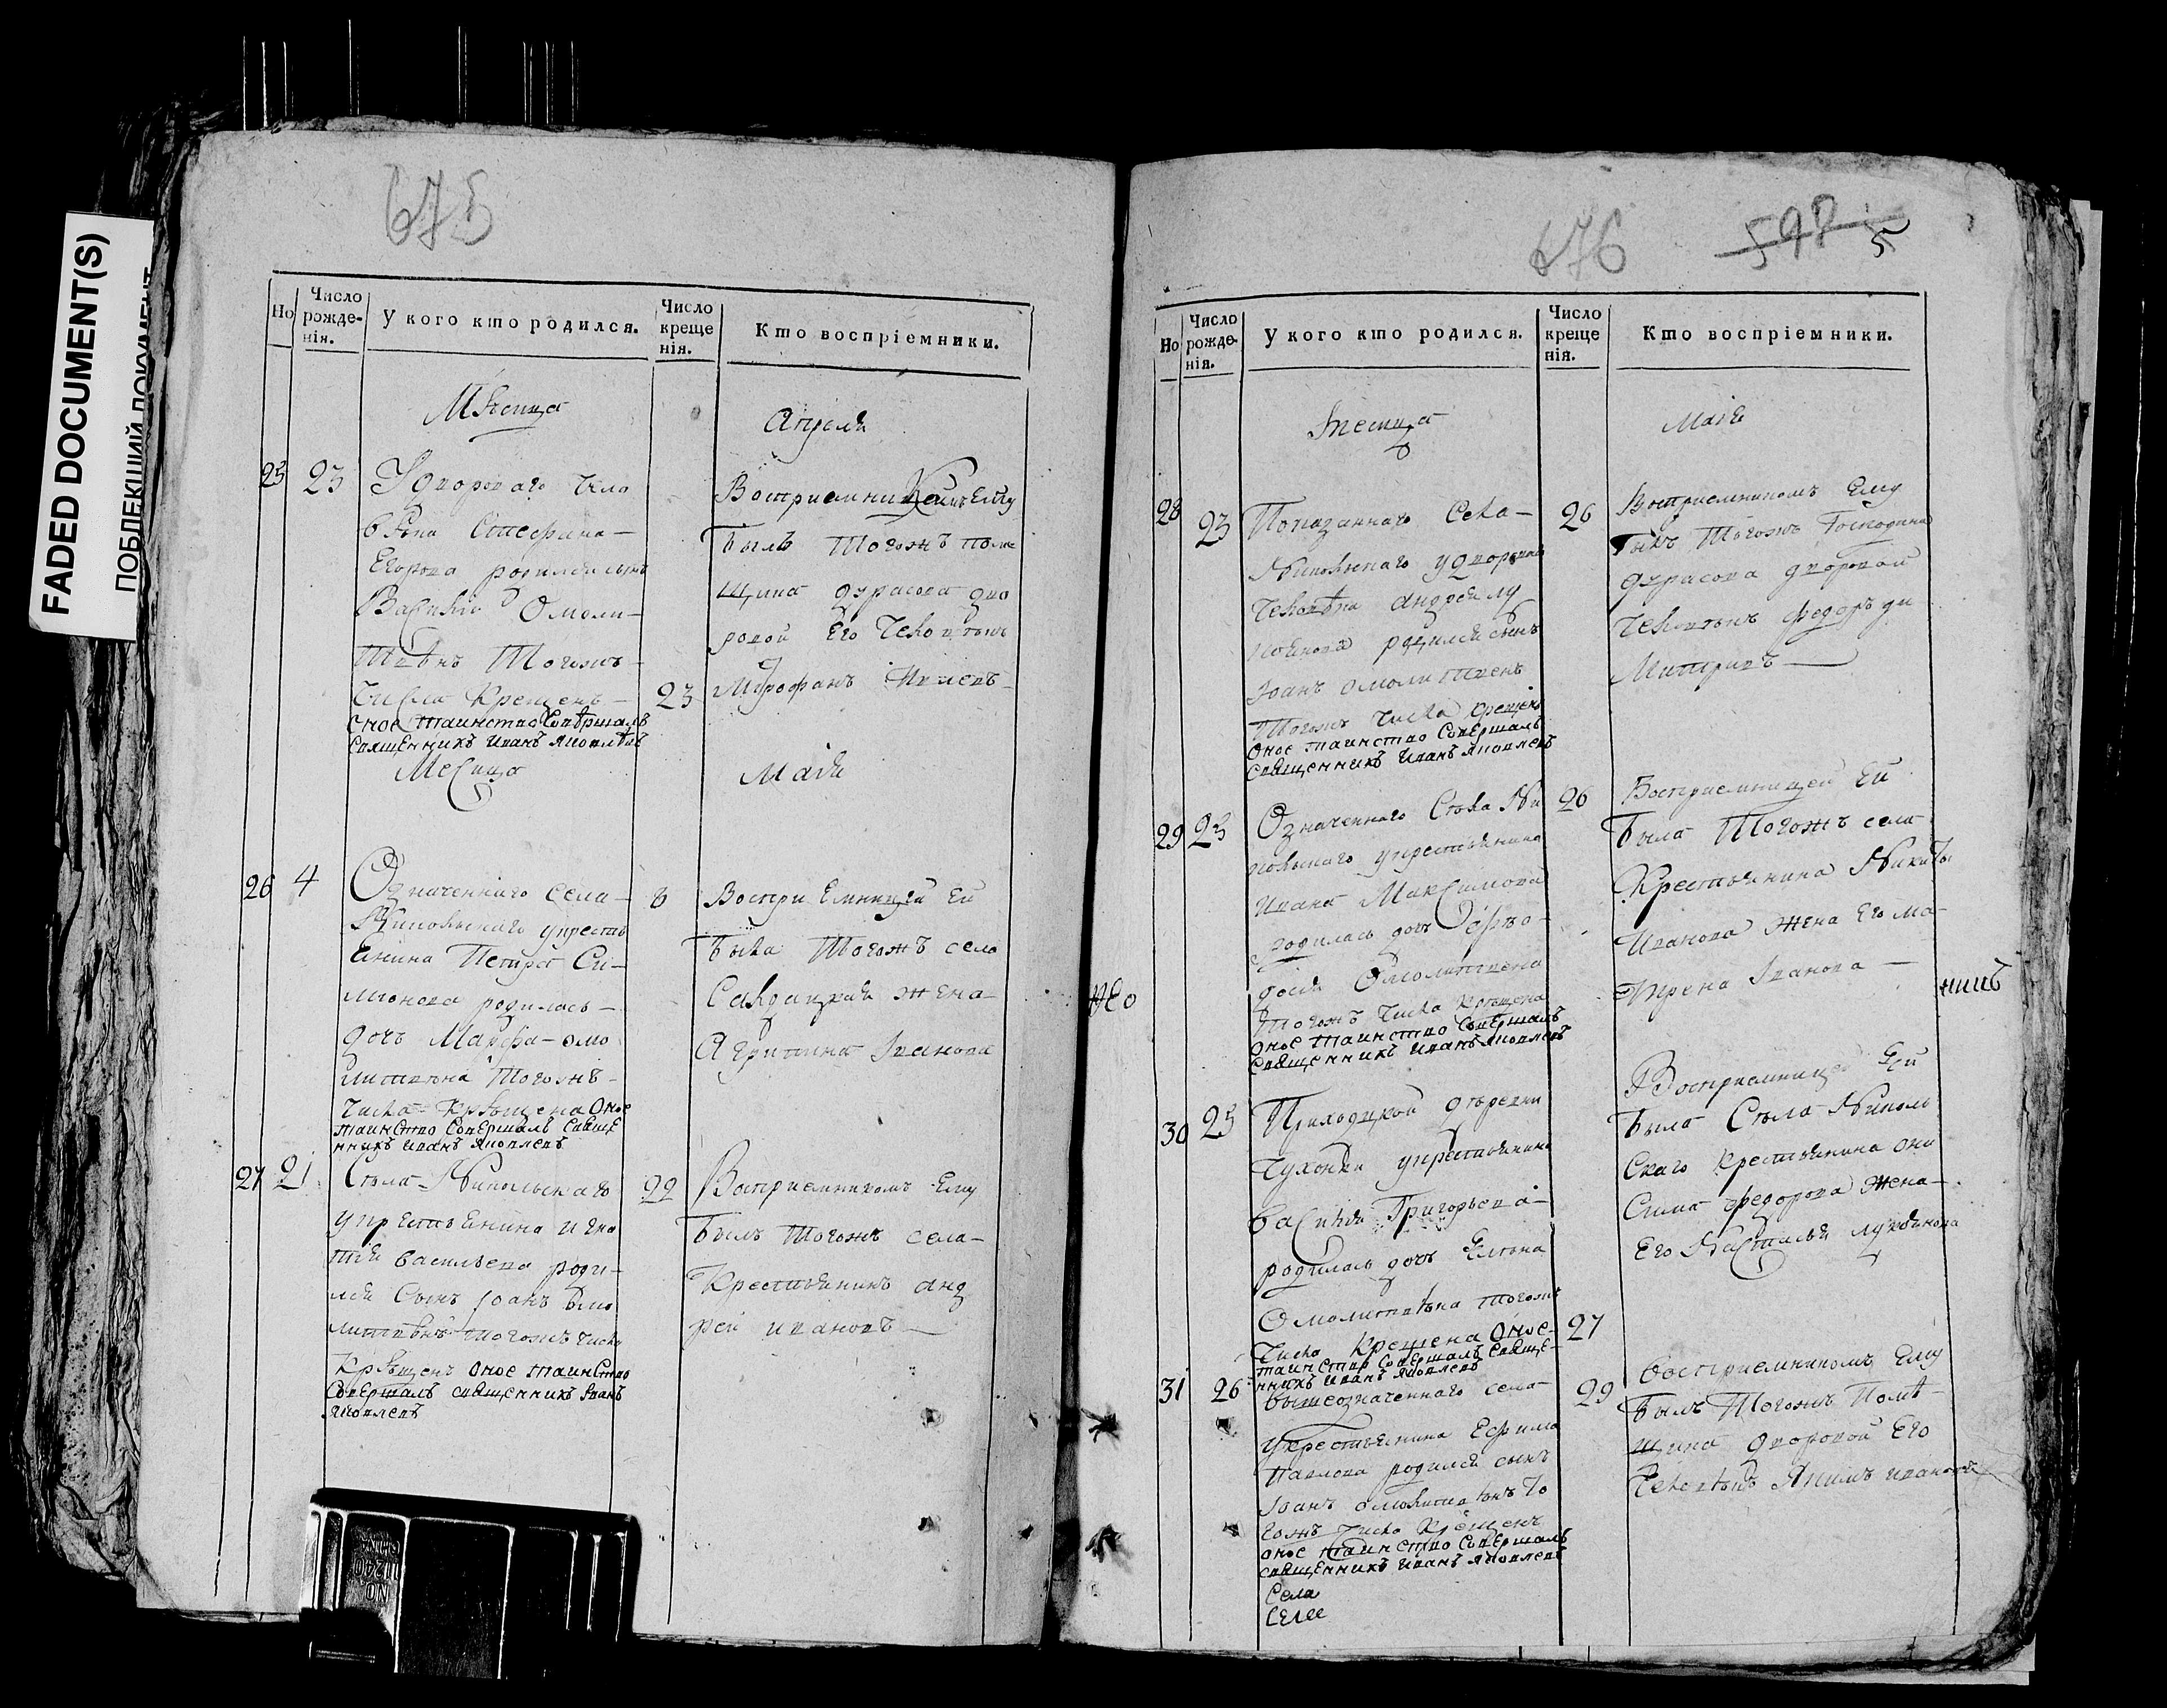 FADED DOCUMENT(S)
ПОБЛЕКШИЙ ДОКУМЕНТ
675
Но
Число рожде-нія.
У кого кто родился.
Число креще нія.
Кто воспріемники.
Мѣсица
Апреля
25
23
У двороваго чело
вѣка Стефана
Егорова родился сынъ
Василій Омоли-
твѣнъ тогожъ
числа крещенъ
оное таинство совѣршалъ
священникъ иванъ яковлѣвъ
23
Восприемникомъ Ему
былъ тогожъ поме
щика дурасова дво
ровой Его человѣкъ
Месица
Маія
26
4
Означеннаго села
Никольскаго укресть
янина Петра Си-
монова родилась
дочь Марфа омо
литвѣна тогожъ
числа крѣщена оное
таинство совершалъ свяще
нникъ иванъ яковлевъ
8
Воспри Емницей Ей
была тогожъ села
Салдацкая жена
Агрипина Iванова
27
21
Сѣла Никольскаго
укрестьянина игна
тия васильева роди-
лся Сынъ Iоанъ омо
литвѣнъ тогожъ числа
Крѣщенъ оное таинство
совершалъ священникъ Iванъ
яковлевъ
22
Восприемникомъ Ему
былъ тогожъ села
Крестьянинъ анд
рей ивановъ
676
598
5
Но
Число рожде-нія.
У кого кто родился.
Число креще нія.
Кто воспріемники.
Маія
28
23
Показаннаго Села
Никольскаго удворова
человѣка андрея лу
родился сынъ
Iоанъ омолитвенъ
тогожъ числа крещенъ
оное таинство совершалъ
священникъ иванъ яковлевъ
26
Восприемникомъ Ему
былъ тогожъ Господина
дурасова дворовой
человѣкъ федоръ ди
митривъ
29
23
Означеннаго Сѣла Ни
кольскаго укрестьянина
Ивана Максимова
родилась дочь Ѳефѣо-
досия Омолитвена
тогожъ числа крѣщена
оное таинство совершалъ
священникъ иванъ яковлевъ
26
Восприемницей Ей
была тогожъ села
Крестьянина Никиты
Иванова жена Его ма-
трена Iванова
30
25
Приходцкой дѣревни
Чухонки укрестьянина
василия Григорьева
родилась дочь Елѣна
Омолитвѣна тогожъ
числа крещена оное
таинство совершалъ свяще-
нникъ иванъ яковлевъ
27
Восприемницей Ей
была Сѣла Николь
скаго крестьянина они
сима федорова жена
Его Настасья лукьянова
31
26
вышеозначеннаго села
укрестьянина Ефима
павлова родился сынъ
Iоанъ омолитвѣнъ то
гожъ числа Крещенъ
оное таинство совершалъ
священникъ иванъ яковлевъ
Села
Селее
29
восприемникомъ Ему
былъ тогожъ Помѣ-
щика дворовой Его
человѣкъ Якимъ ивановъ